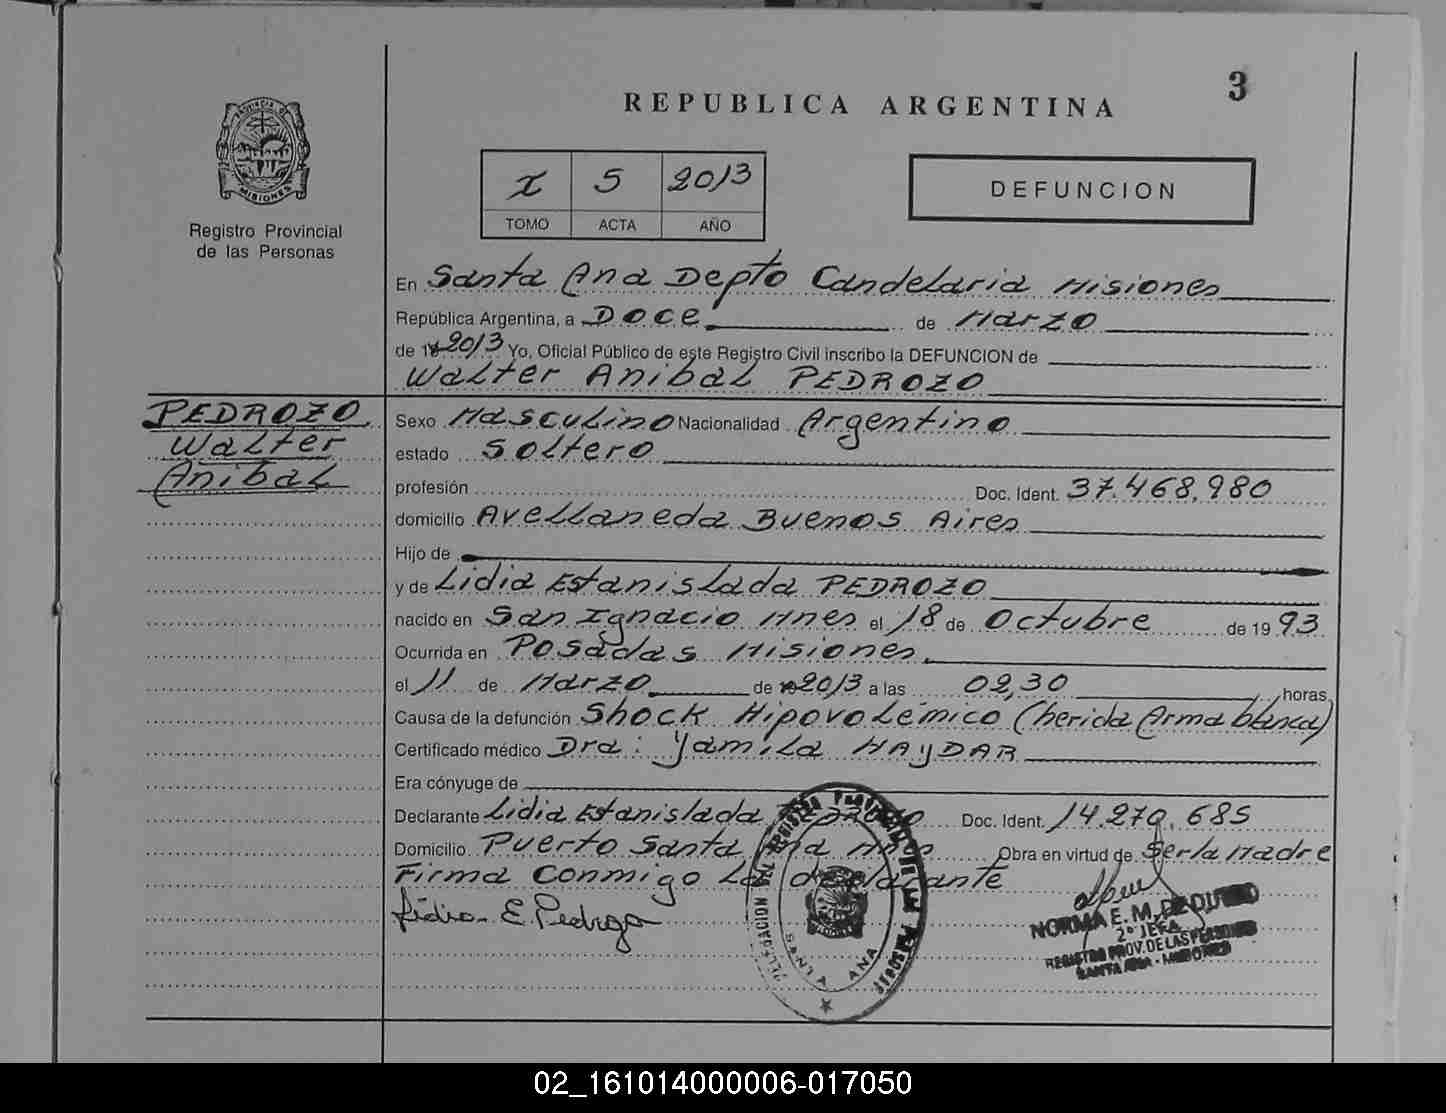 3
REPUBLICA ARGENTINA
PROVINCIA DE
MISIONES
Registro Provincial
de las Personas
I 5 2013
TOMO ACTA AÑO
DEFUNCION
En Santa Ana Depto Candelaria Misiones
República Argentina, a Doce de Marzo
de 2013 Yo, Oficial Público de este Registro Civil inscribo la DEFUNCION de
Walter Anibal PEDROZO
PEDROZO
Walter
Anibal
Sexo Masculino Nacionalidad Argentino
estado Soltero
profesión Doc. Ident. 37.468.980
domicilio Avellaneda Buenos Aires
Hijo de
y de Lidia Estanislada PEDROZO
nacido en San Ignacio Mnes el 18 de Octubre de 1993
Ocurrida en Posadas Misiones
el 11 de Marzo de 2013 a las 02,30 horas
Causa de la defunción Shock Hipovolémico (herida Arma blanca)
Certificado médico Dra: Yamila HAYDAR
Era cónyuge de
Declarante Lidia Estanislada PEDROZO Doc. Ident. 14.270.685
Domicilio Puerto Santa Ana Mnes Obra en virtud de Ser la Madre
Firma Conmigo La declarante
Lidia E. Pedrozo
DELEGACION DEL REGISTRO PROVINCIAL DE LAS PERSONAS
SANTA ANA
NORMA E. M. DE
2º JEFA
REGISTRO PROV. DE LAS PERSONAS
SANTA ANA - MISIONES
02_161014000006-017050